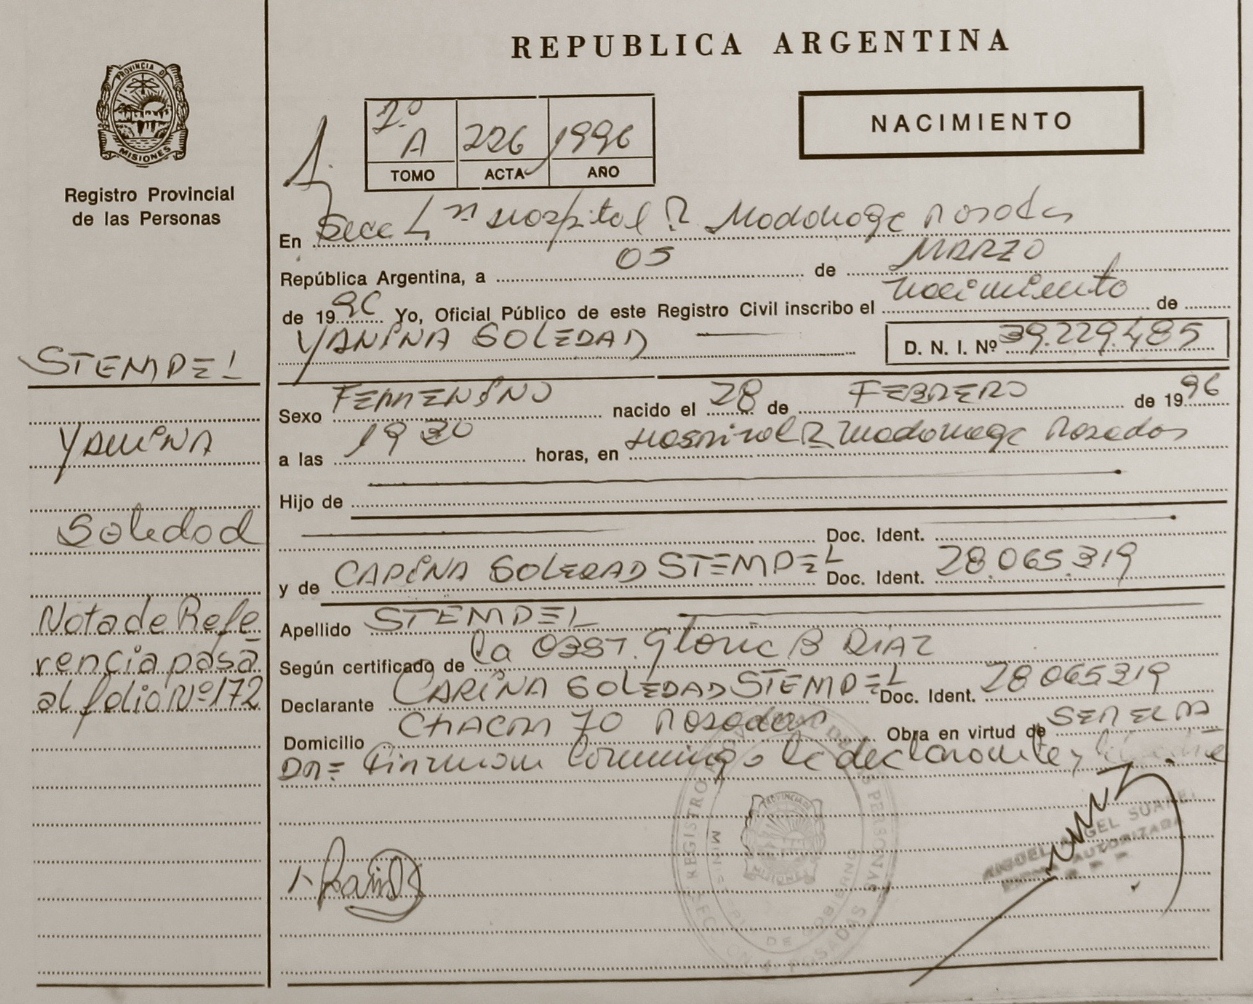 REPUBLICA ARGENTINA
PROVINCIA DE
MISIONES
Registro Provincial
de las Personas
NACIMIENTO
A 226 1996
TOMO ACTA AÑO
En Secc Hospital R Madariaga Posadas
República Argentina, a 05 de MARZO
de 1996 Yo, Oficial Público de este Registro Civil inscribo el nacimiento de
YANINA SOLEDAD D. N. I. Nº 39.229.485
STEMPEL
Sexo FEMENINO nacido el 28 de FEBRERO de 1996
YANINA
a las 19 30 horas, en Hospital R Madariaga Posadas
Hijo de
Soledad
Doc. Ident.
y de CARINA SOLEDAD STEMPEL Doc. Ident. 28.065.319
Nota de Refe
rencia pasa
al folio Nº 172
Apellido STEMPEL
Según certificado de la OBST. Gloria B DIAZ
Declarante CARINA SOLEDAD STEMPEL Doc. Ident. 28065319
Domicilio CHACO 70 Posadas Obra en virtud de SER ELA
la declarante y
REGISTRO PROVINCIAL DE LAS PERSONAS
MINISTERIO DE GOBIERNO
MISIONES
POSADAS
MIGUEL ANGEL SUAREZ
AUTORIZADA